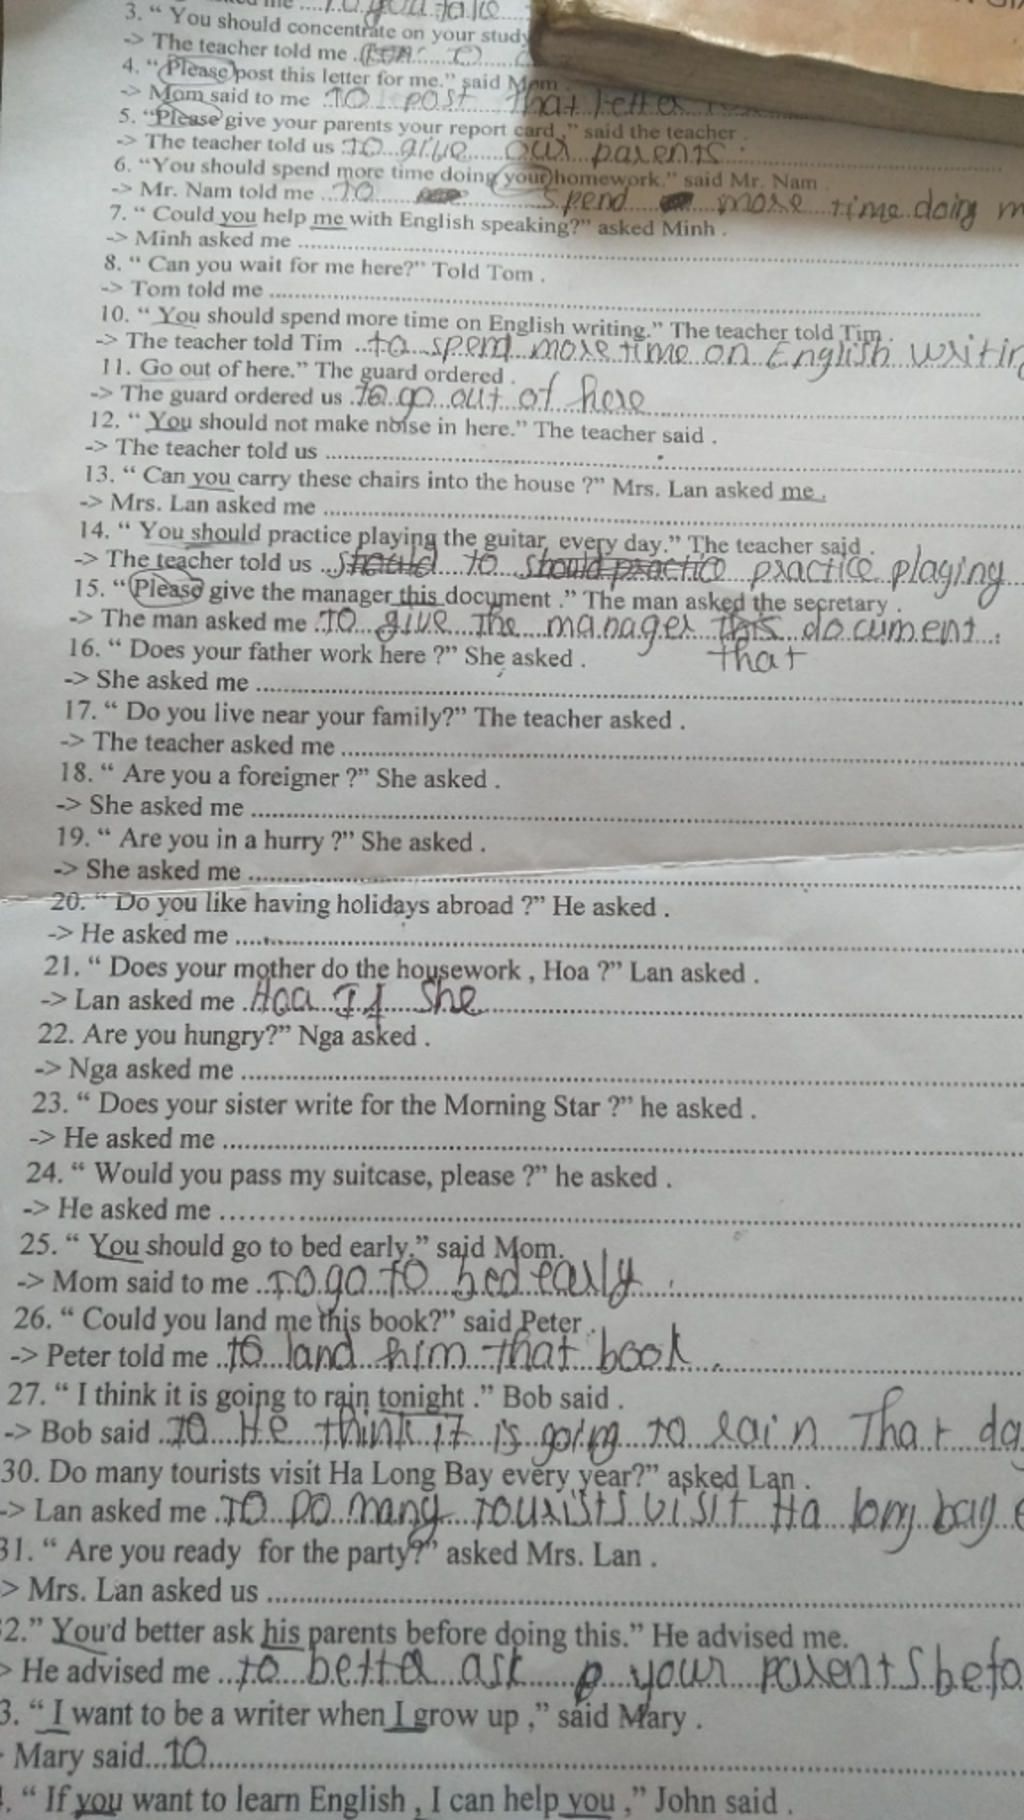 To you take
3. “ You should concentrate on your study
-> The teacher told me
4. “ Please post this letter for me.” said Mom .
-> Mom said to me To post that letter
5. “Please give your parents your report card ,” said the teacher .
-> The teacher told us To give our parents .
6. “You should spend more time doing your homework.” said Mr. Nam .
-> Mr. Nam told me To spend more time doing m
7. “ Could you help me with English speaking?” asked Minh .
-> Minh asked me
8. “ Can you wait for me here?” Told Tom .
-> Tom told me
10. “ You should spend more time on English writing.” The teacher told Tim .
-> The teacher told Tim to spend more time on English writing
11. Go out of here.” The guard ordered .
-> The guard ordered us to go out of here
12. “ You should not make noise in here.” The teacher said .
-> The teacher told us
13. “ Can you carry these chairs into the house ?” Mrs. Lan asked me .
-> Mrs. Lan asked me
14. “ You should practice playing the guitar every day.” The teacher said .
-> The teacher told us should to should practice practice playing
15. “Please give the manager this document .” The man asked the secretary .
-> The man asked me To give The manager this document .
that
16. “ Does your father work here ?” She asked .
-> She asked me
17. “ Do you live near your family?” The teacher asked .
-> The teacher asked me
18. “ Are you a foreigner ?” She asked .
-> She asked me
19. “ Are you in a hurry ?” She asked .
-> She asked me
20. “ Do you like having holidays abroad ?” He asked .
-> He asked me
21. “ Does your mother do the housework , Hoa ?” Lan asked .
-> Lan asked me Hoa If she
22. Are you hungry?” Nga asked .
-> Nga asked me
23. “ Does your sister write for the Morning Star ?” he asked .
-> He asked me
24. “ Would you pass my suitcase, please ?” he asked .
-> He asked me
25. “ You should go to bed early.” said Mom.
-> Mom said to me To go to bed early .
26. “ Could you land me this book?” said Peter .
-> Peter told me to land him that book .
27. “ I think it is going to rain tonight .” Bob said .
-> Bob said To He think it is going to rain That da
30. Do many tourists visit Ha Long Bay every year?” asked Lan .
-> Lan asked me To Do many tourists visit Ha long bay e
31. “ Are you ready for the party?” asked Mrs. Lan .
> Mrs. Lan asked us
2.” You'd better ask his parents before doing this.” He advised me.
> He advised me to better ask your parents befo
3. “ I want to be a writer when I grow up ,” said Mary .
Mary said To
. “ If you want to learn English , I can help you ,” John said .